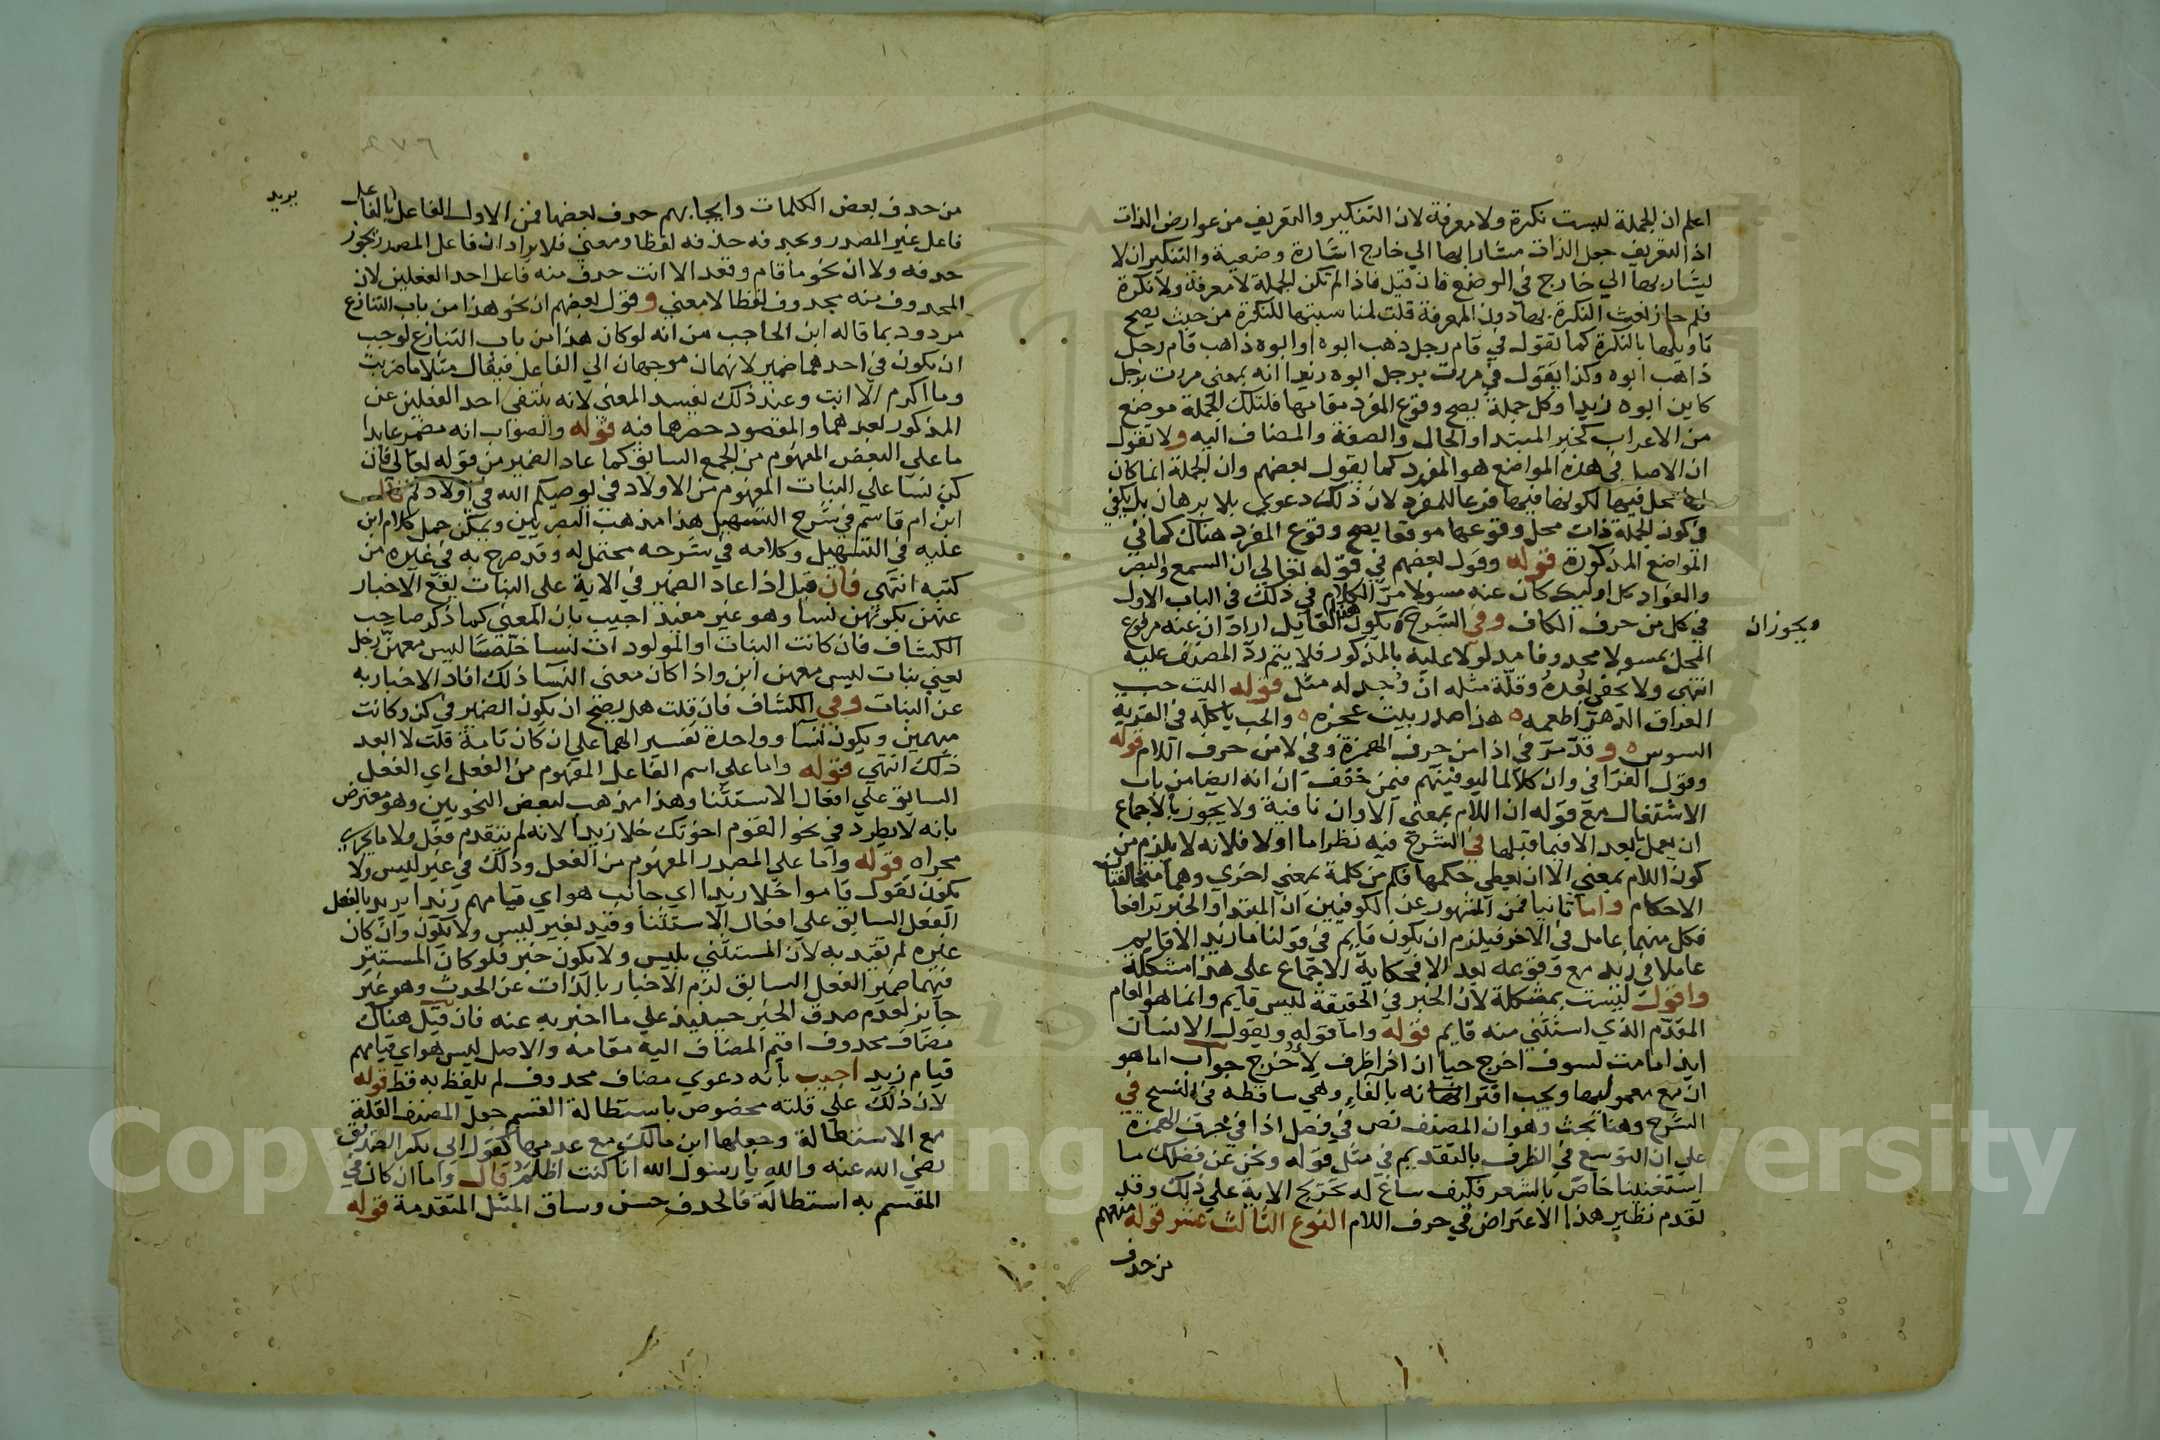 اعلم ان الجملة ليست نكرة ولا معرفة لان التنكير والتعريف من عوارض الذات
اذ التعريف جعل الذات مشارا بها الي خارج اشارة وضعية والتنكير ان لا
يشار بها الي خارج في الوضع فان قيل فاذا لم تكن الجملة لا معرفة ولا نكرة
فلم جاز نعت النكرة بها دون المعرفة قلت لمناسبتها للنكرة من حيث يصح
تاويلها بالنكرة كما تقول في قام رجل ذهب ابوه او ابوه ذاهب قام رجل
ذاهب ابوه وكذا يقول في مررت برجل ابوه زيد انه بمعني مررت برجل
كاين ابوه زيدا وكل جملة يصح وقوع المفرد مقامها فلتلك الجملة موضع
من الاعراب كخبر المبتدا والحال والصفة والمضاف اليه ولا نقول
ان الاصل في هذه المواضع هو المفرد كما يقول بعضهم وان الجملة انما كان
لها محل فيها لكونها فيها فرعا للمفرد لان ذلك دعوي بلا برهان بل يكفي
في كون الجملة ذات محل وقوعها موقعا يصح وقوع المفرد هناك كما في
المواضع المذكورة قوله وقول بعضهم في قوله تعالي ان السمع والبصر
والفواد كل اوليك كان عنه مسولا مر الكلام في ذلك في الباب الاول
في كل من حرف الكاف وفي الشرح يكون هذا القايل اراد ان عنه مرفوع
ويجوز ان
المحل بمسولا محذوفا مدلولا عليه بالمذكور فلا يتم رد المصنف عليه
انتهي ولا يخفي بعده وقلة مثله ان وجد له مثل قوله اليت حب
العراق الدهر اطعمه ه هذا صدر بيت عجزه ه والحب ياكله في القرية
السوس ه وقد مر في اذا من حرف الهمزة وفي لا من حرف اللام قوله
وقول الفرا في وان كلا لما ليوفينهم فيمن خفف ان انه ايضا من باب
الاشتغال مع قوله ان اللام بمعني الا وان نافية ولا يجوز بالاجماع
ان يعمل ما بعد الا فيما قبلها في الشرح فيه نظر اما اولا فلانه لا يلزم من
كون اللام بمعني الا ان تعطي حكمها فكم من كلمة بمعني اخري وهما متخالفتان
الاحكام واما ثانيا فمن المشهور عن الكوفيين ان المبتدا والخبر ترافعا
فكل منهما عامل في الاخر فيلزم ان يكون قايم في قولنا ما زيد الا قايم
عاملا في زيد مع وقوعه بعد الا فحكاية الاجماع علي هذا مشكلة
واقول ليست بمشكلة لان الخبر في الحقيقة ليس قايم وانما هو العام
المقدم الذي استثني منه قايم قوله واما قوله ويقول الانسان
ايذا ما مت لسوف اخرج حيا ان اذا ظرف لاخرج جواب اما هو
ان مع معموليها ويجب اقترانه بالفاء وهي ساقطة في النسخ في
الشرح وهنا بحث وهو ان المصنف نص في فصل اذا في حرف الهمزة
علي ان التوسع في الظرف بالتقديم في مثل قوله ونحن عن فضلك ما
استغنينا خاص بالشعر فكيف ساغ له تخريج الاية علي ذلك وقد
تقدم نظير هذا الاعتراض في حرف اللام النوع الثالث عشر قوله منعهم
من حذف
٤٧٦
من حذف بعض الكلمات وايجابهم حذف بعضها فمن الاول الفاعل بالفاعل
يريد
فاعل غير المصدر وبحذفه حذفه لفظا ومعني فلا يراد ان فاعل المصدر يجوز
حذفه ولا ان نحو ما قام وقعد الا انت حذف منه فاعل احد الفعلين لان
المحذوف منه محذوف لفظا لا معني وقول بعضهم ان نحو هذا من باب التنازع
مردود بما قاله ابن الحاجب من انه لو كان هذا من باب التنازع لوجب
ان يكون في احدهما ضمير لانهما موجهان الي الفاعل فيقال مثلا ما ضربت
وما اكرم الا انت وعند ذلك يفسد المعني لانه ينتفي احد الفعلين عن
المذكور بعدهما والمقصود حصرهما فيه قوله والصواب انه مضمر عايد
اما علي البعض المفهوم من الجمع السابق كما عاد الضمير من قوله تعالي فان
كن نسا علي البنات المفهوم من الاولاد في يوصيكم الله في اولادكم قال
ابن ام قاسم في شرح التسهيل هذا مذهب البصريين ويمكن حمل كلام ابن
عليه في التسهيل وكلامه في شرحه محتمل له وقد صرح به في غيره من
كتبه انتهي فان قيل اذا عاد الضمير في الاية علي البنات يقع الاخبار
عنهن بكونهن نسا وهو غير مفيد اجيب بان المعني كما ذكر صاحب
الكشاف فان كانت البنات او المولودات نسا خلصا ليس معهن رجل
يعني بنات ليس معهن ابن واذا كان معني النسا ذلك افاد الاخبار به
عن البنات وفي الكشاف فان قلت هل يصح ان يكون الضمير في كن وكانت
مبهمين ويكون نسا وواحدة تفسير الهما علي ان كان تامة قلت لا ابعد
ذلك انتهي قوله واما علي اسم الفاعل المفهوم من الفعل اي الفعل
السابق علي افعال الاستثنا وهذا مذهب لبعض النحويين وهو معترض
بانه لا يطرد في نحو القوم اخوتك خلا زيدا لانه لم يتقدم فعل ولا ما يجري
مجراه قوله واما علي المصدر المفهوم من الفعل وذلك في غير ليس ولا
يكون تقول قاموا خلا زيدا اي جانب هو اي قيامهم زيدا يريد بالفعل
الفعل السابق علي افعال الاستثنا وقيد بغير ليس ولا يكون وان كان
غيره لم يقيد به لان المستثني بليس ولا يكون خبر فلو كان المستتر
فيهما ضمير الفعل السابق لزم الاخبار بالذات عن الحدث وهو غير
جايز لعدم صدق الخبر حينيذ علي ما اخبر به عنه فان قيل هناك
مضاف محذوف اقيم المضاف اليه مقامه والاصل ليس هو اي قيامهم
قيام زيد اجيب بانه دعوي مضاف محذوف لم يلفظ به قط قوله
لان ذلك علي قلته مخصوص باستطالة القسم جعل المصنف القلة
مع الاستطالة وجعلها ابن مالك مع عدمها كقول ابي بكر الصديق
رضي الله عنه والله يا رسول الله انا كنت اظلم قال واما ان كان في
المقسم به استطالة فالحذف حسن وساق المثل المتقدمة قوله
Copyright © King Saud University